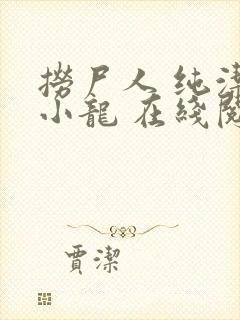 撈尸人 纯洁
小龍 在綫閱
賈潔